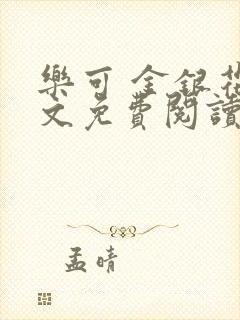 樂可 金銀花
文免費閱讀
孟晴